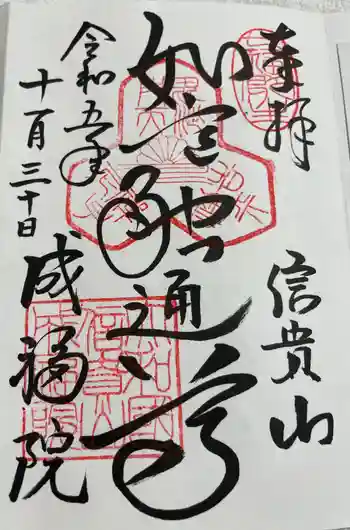 奉拝
信貴山
如意融通尊
令和五年
十一月三十日
成福院